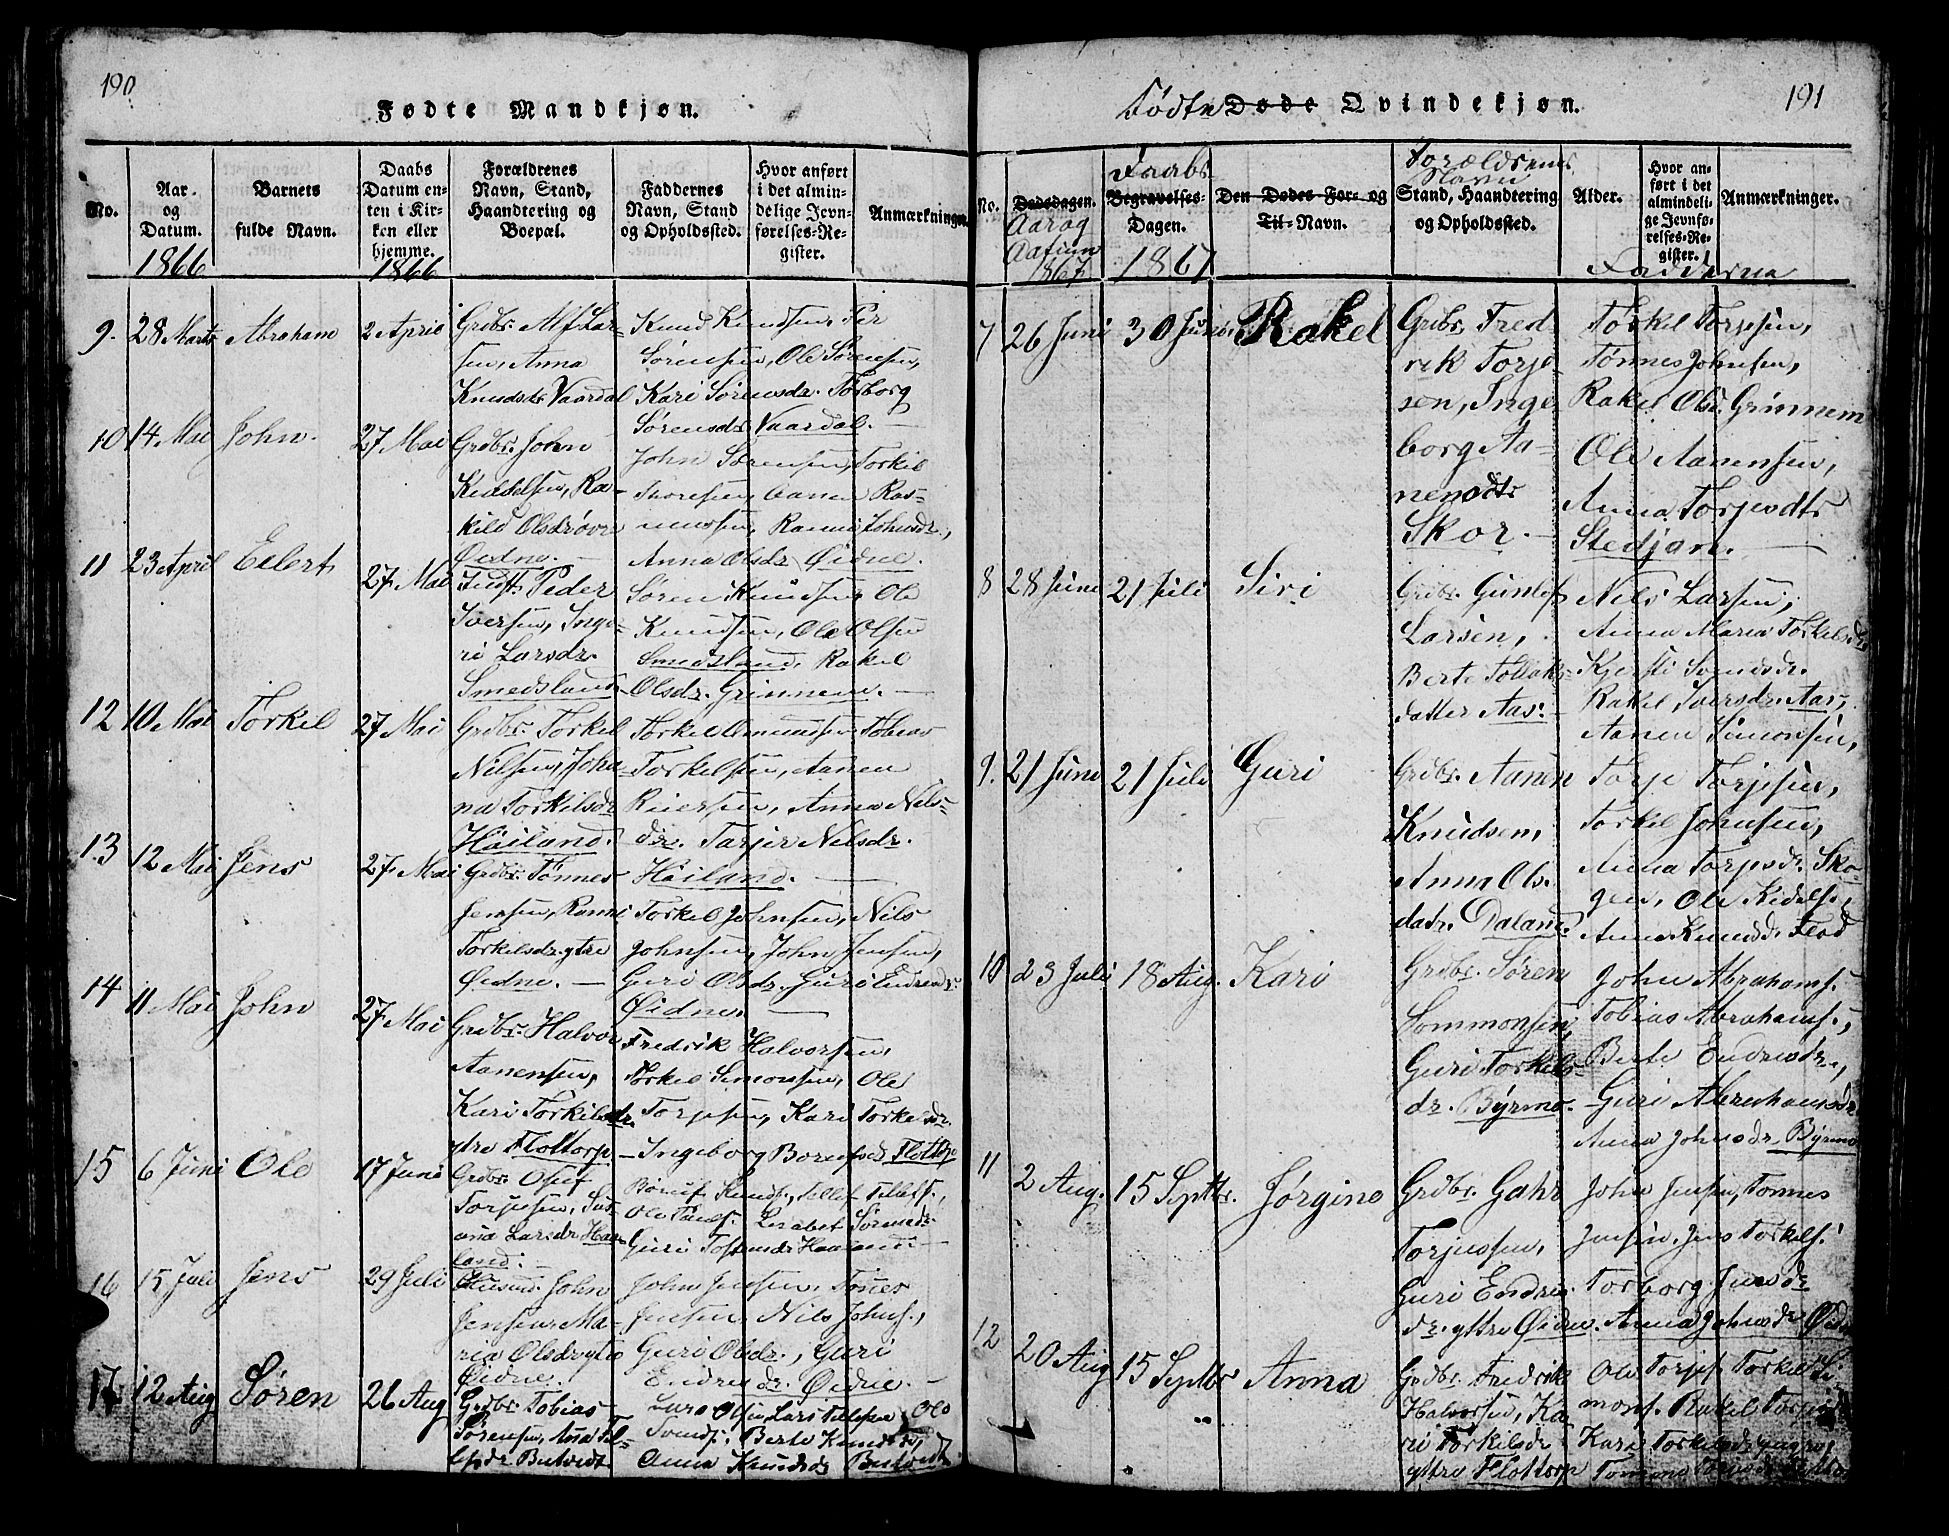 190
Fødte Mandkjøn.
No.
Aar og Datum.
1866
Barnets fulde Navn.
Daabs Datum enten i Kirken eller hjemme.
1866
Forældrenes Navn, Stand, Haandtering og Boepæl.
Faddernes Navn, Stand og Opholdssted.
Hvor anført i det almindelige Jevnførelses-Register.
Anmærkninger
9. 28 Marts Abraham 2 April
Grdbr. Alf Lar-
sen, Anna
Knudsdr Vaardal
Knud Knudsen, Per
Sørensen, Ole Sørensen,
Kari Sørensdr. Torborg
Sørensdr Vaardal. —
10 14 Mai John. 27 Mai
Grdbr. John
Keddelsen, Ra-
kild Olsdr øvre
Øidne. —
John Sørensen, Torkil
Thoresen, Aanen Ras-
mussen, Rannei Johnsdr,
Anna Olsdr Øidne.
11 23 April Eilert 27 Mai
Peder
Iversen, Inge-
ri Larsdr.
Smedsland
Søren Knudsen, Ole
Knudsen, Ole Olsen
Smedsland, Rakel
Olsdr. Grinnem. —
12 10 Mai Torkel 27 Mai
Grdbr. Torkel
Nilsen, Joha-
na Torkilsdr
Høiland.
Torkel Omundsen Tobias
Torkelsen, Aanen
Reiersen, Anna Nils-
dr. Tarjer Nilsdr.
Høiland. —
13 12 Mai Jens 27 Mai
Grdbr. Tønnes
Jensen, Rannei
Torkilsdr. ytre
Øidne. —
Torkel Johnsen, Nils
Johnsen, John Jensen,
Guri Olsdr. Guri Endresdr.
Øidne. —
14 11 Mai John 27 Mai
Grdbr. Halvor
Aanensen,
Kari Torkilsdr.
ytre Flottorp
Fredrik Halvorsen,
Torkel Simonsen, Ole
Torjesen, Kari Torkelsdr.
Ingeborg Berentsdr Flottorp
15 6 Juni Ole 17 Juni
Grdbr. Osuf
Torjusen, Sus-
ana Larsdr Haa-
land. —
Børuf Knuds., Tellef Tellefs.,
Ole Lisabet Sørensdr.
Guri Haaland. —
16 15 Juli Jens 29 Juli
Husmd. John
Jensen Ma-
ria Olsdr ytre
Øidne.
John Jensen, Tønes
Jensen, Nils Johns.,
Guri Olsdr., Guri
Endresdr. Øidne. —
17 12 Aug Søren 26 Aug
Grdbr. Tobias
Sørensen, Ana Tel-
lefsdr Butvedt
Lars Olsen, Lars Tellefsen, Ole
Svends. Berte Knudsdr,
Anna Knudsdr Butvedt
191
Fødte Døde Qvindekjøn.
No.
Dødsdagen.
Aar og
Datum
1867
Daabs
Begravelses-Dagen.
1867
Den Dødes For- og Til-Navn.
Forældrenes
Navn
Stand, Haandtering og Opholdssted.
Alder.
Hvor anført i det almindelige Jevnførelses-Register.
Anmærkninger.
Fadderne
7 26 Juni 30 Juni Rakel
Grdbr. Fred-
rik Torje-
sen, Inge-
borg Aa-
nensdtr
Skor. —
Torkel Torjesen,
Tønnes Johnsen,
Rakel Olsd. Grinnem
Ole Aanensen,
Anna Torjesdtr
Stedjan. —
8 28 Juni 21 Juli Siri
Grdbr. Gunlef
Larsen,
Berte Tollaks-
datter Aas:
Nils Larsen,
Anna Maria Torkelsdr
Kjersti Svendsdr.
Rakel Iversdr. Aas,
Aanen Simonsen,
9. 21 Juni 21 Juli Guri
Grdbr. Aanen
Knudsen,
Anna Ols-
datr. Daland.
Torje Torjesen,
Torkel Johnsen,
Anna Torjesdr. Sko-
gen, Ole Kidels.,
Anna Knudsd. Flod
10 23 Juli 18 Aug. Kari
Grdbr. Søren
Sommonsen,
Guri Torkels-
dr. Byrmo.
John Abrahams.
Tobias Abrahams.,
Berte Endresdr.,
Guri Abrahamsdr
Anna Johnsdr. Byrmo
11 2 Aug. 15 Septbr. Jørgine
Grdbr. Gahr
Torjussen,
Guri Endres-
dr. yttre Øidne.
John Jensen, Tønnes
Jensen, Jens Torkels.
Torborg Jensdr
Anna Johnsdr Øidne
12 20 Aug 15 Septbr Anna
Grdbr. Fredrik
Halvorsen, Ka-
ri Torkilsdr
yttre Flottorp
Ole Torjes. Torkel Si-
mons. Rakel Torjesdr
Kari Torkilsdr
Tomine Torjesdr